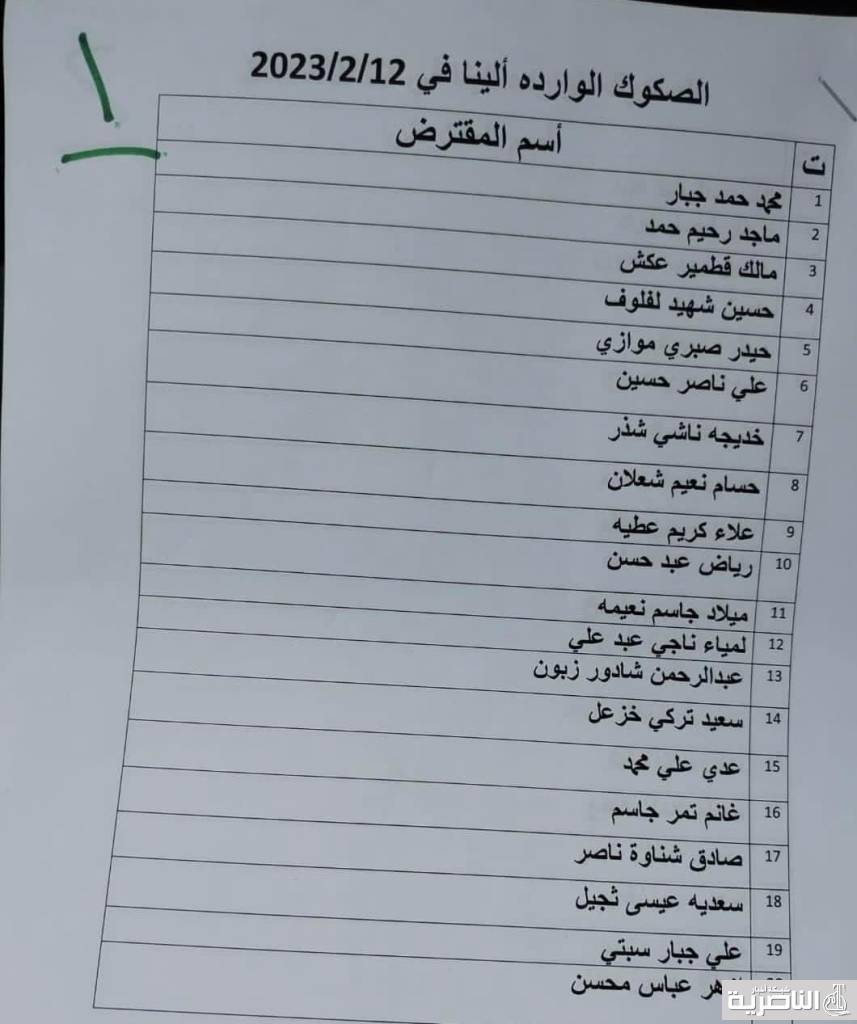 الصكوك الوارده ألينا في 2023/2/12
ت أسم المقترض
1 محمد حمد جبار
2 ماجد رحيم حمد
3 مالك قطمير عكش
4 حسين شهيد لفلوف
5 حيدر صبري موازي
6 علي ناصر حسين
7 خديجه ناشي شذر
8 حسام نعيم شعلان
9 علاء كريم عطيه
10 رياض عبد حسن
11 ميلاد جاسم نعيمه
12 لمياء ناجي عبد علي
13 عبدالرحمن شادور زبون
14 سعيد تركي خزعل
15 عدي علي محمد
16 غانم تمر جاسم
17 صادق شناوة ناصر
18 سعديه عيسى ثجيل
19 علي جبار سبتي
عباس محسن
شبكة أخبار
الناصرية